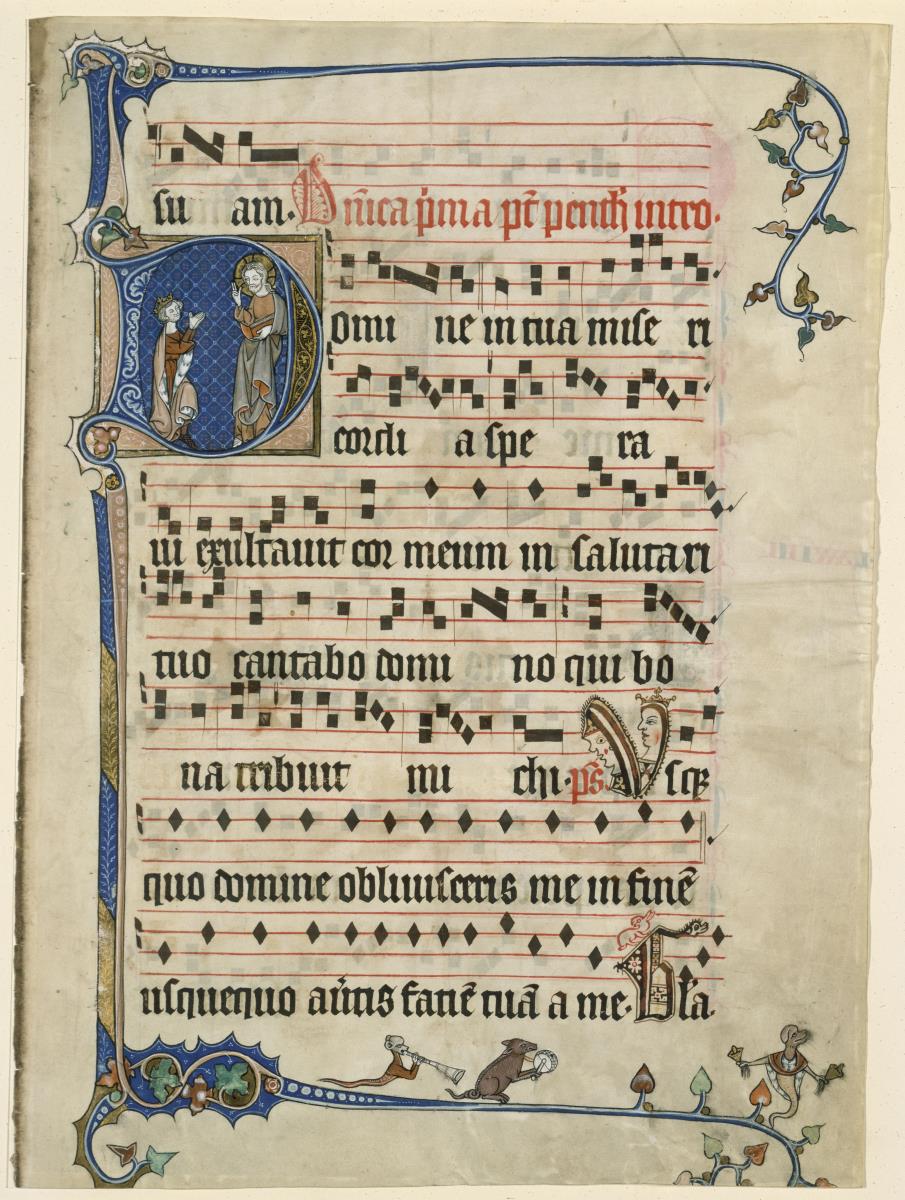 su am. Dñica p̃ma pt̃ penth̃ intro.
Domi ne in tua mise ri
cordi a spe ra
ui exultauit cor meum in salutari
tuo cantabo domi no qui bo
na tribuit mi chi. ps̃. Vsq̃
quo domine obliuisceris me in finē
usquequo au̾tis faciē tuā a me. Gl̃a.